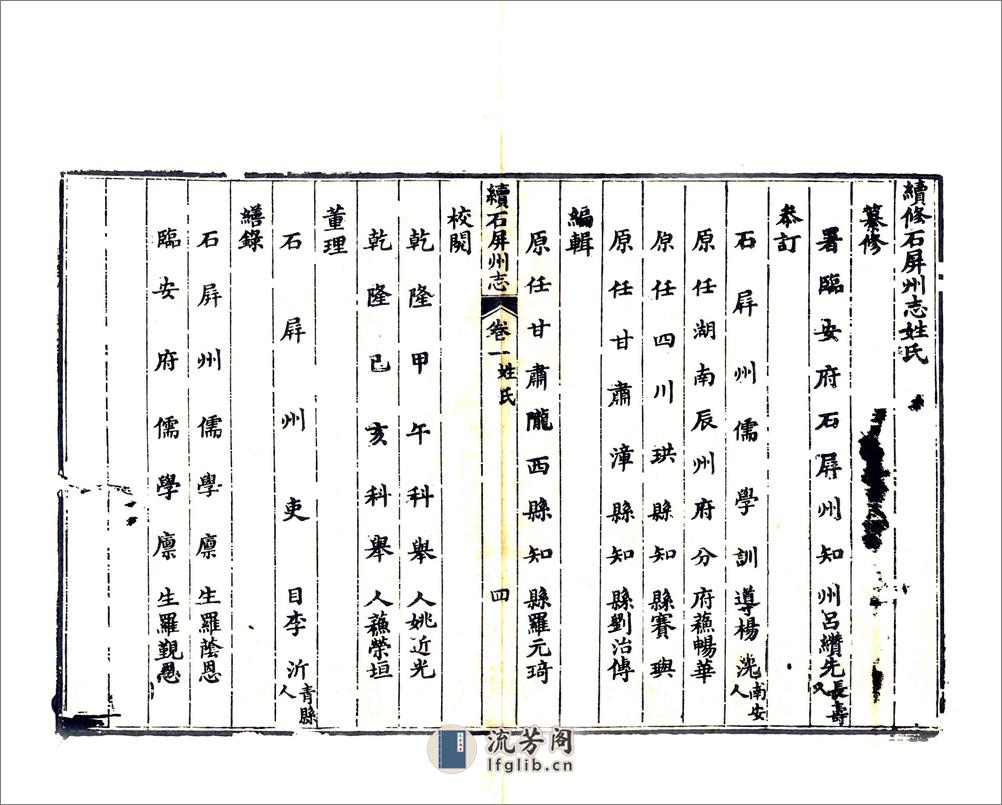 續修石屏州志姓氏
纂修
署臨安府石屏州知州呂纘先長壽人
叅訂
石屏州儒學訓導楊 南安人
原任湖南辰州府分府蘓暢華
原任四川珙縣知縣賽璵
原任甘肅漳縣知縣劉治傳
編輯
原任甘肅隴西縣知縣羅元琦
續石屏州志 卷一 姓氏 四
校閱
乾隆甲午科舉人姚近光
乾隆己亥科舉人蘓榮垣
董理
石屏州吏目李沂青縣人
繕錄
石屏州儒學廪生羅蔭恩
臨安府儒學廪生羅覲恩
流芳阁
lfglib.cn